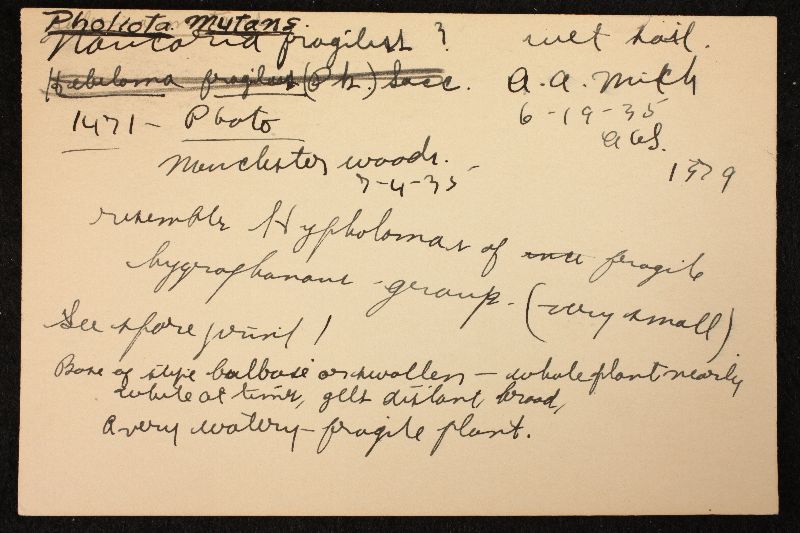 Pholiota mutans.
Naucoria fragilis ? wet soil.
Hebeloma fragilis (Pk.) Sacc. A. A. Mich
1471 - Photo 6-19-35
Manchester woods. 7-4-35 1979
resemble Hypholomas of fragile
hygrophanous group. (very small)
See spore print!
Base of stipe bulbose or swollen - whole plant nearly
white at times, gills distant broad,
A very watery - fragile plant.